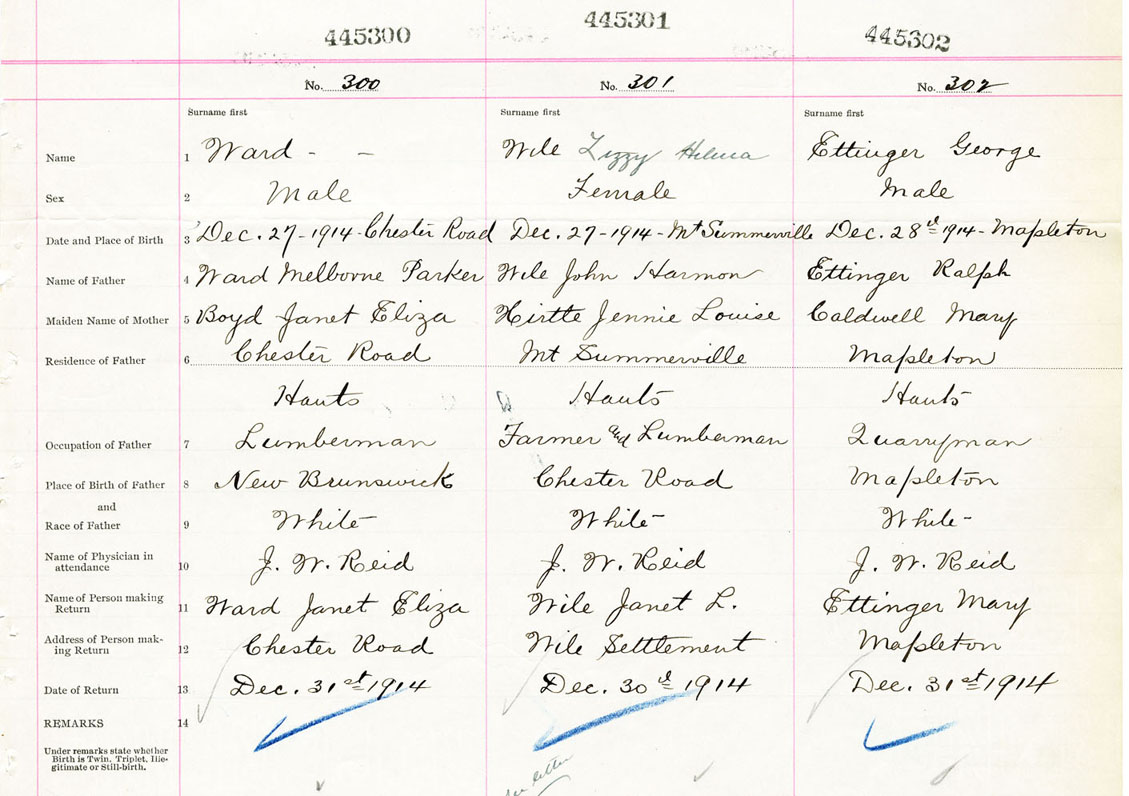 445300 445301 445302
No. 300 No. 301 No. 302
Surname first Surname first Surname first
Name 1 Ward - - Wile Lizzy Helena Ettinger George
Sex 2 Male Female Male
Date and Place of Birth 3 Dec. 27-1914-Chester Road Dec. 27-1914-Mt Summerville Dec. 28th 1914-Mapleton
Name of Father 4 Ward Melborne Parker Wile John Harmon Ettinger Ralph
Maiden Name of Mother 5 Boyd Janet Eliza Hirtle Jennie Louise Caldwell Mary
Residence of Father 6 Chester Road Mt Summerville Mapleton
Hants Hants Hants
Occupation of Father 7 Lumberman Farmer and Lumberman Quarryman
Place of Birth of Father 8 New Brunswick Chester Road Mapleton
and
Race of Father 9 White White White
Name of Physician in
attendance 10 J. W. Reid J. W. Reid J. W. Reid
Name of Person making
Return 11 Ward Janet Eliza Wile Janet L. Ettinger Mary
Address of Person mak-
ing Return 12 Chester Road Wile Settlement Mapleton
Date of Return 13 Dec. 31st 1914 Dec. 30th 1914 Dec. 31st 1914
REMARKS 14
Under remarks state whether
Birth is Twin, Triplet, Ille-
gitimate or Still-birth.
letter